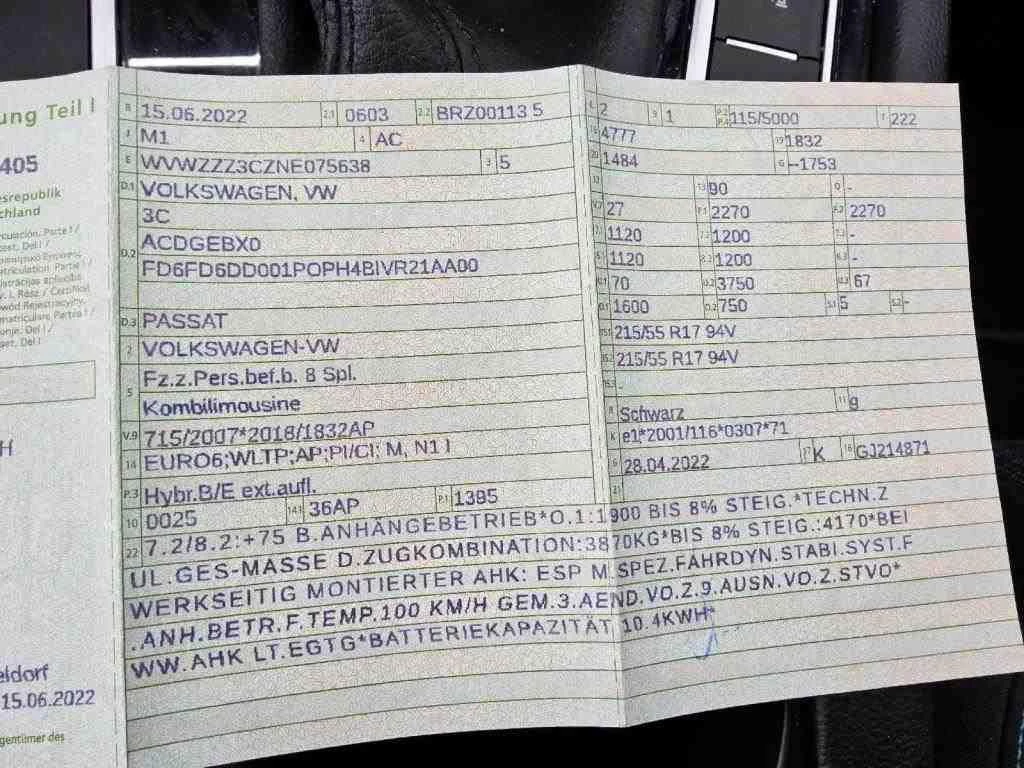 ung Teil I
405
esrepublik
schland
B 15.06.2022 2.1 0603 2.2 BRZ00113 5
J M1 4 AC
E WVWZZZ3CZNE075638 3 5
D.1 VOLKSWAGEN, VW
3C
D.2 ACDGEBX0
FD6FD6DD001POPH4BIVR21AA00
D.3 PASSAT
2 VOLKSWAGEN-VW
5 Fz.z.Pers.bef.b. 8 Spl.
Kombilimousine
V.9 715/2007*2018/1832AP
14 EURO6;WLTP;AP;PI/CI; M, N1 I
P.3 Hybr.B/E ext.aufl.
10 0025 14.1 36AP P.1 1395
L 2 9 1 P.2 P.4 115/5000 T 222
18 4777 19 1832
20 1484 G —1753
12 13 90 Q -
V.7 27 F.1 2270 F.2 2270
7.1 1120 7.2 1200 7.3 -
8.1 1120 8.2 1200 8.3 -
U.1 70 U.2 3750 U.3 67
O.1 1600 O.2 750 S.1 5 S.2 -
15.1 215/55 R17 94V
15.2 215/55 R17 94V
15.3 -
R Schwarz 11 9
K e1*2001/116*0307*71
6 28.04.2022 17 K 16 GJ214871
21
22 7.2/8.2:+75 B.ANHÄNGEBETRIEB*O.1:1900 BIS 8% STEIG.*TECHN.Z
UL.GES-MASSE D.ZUGKOMBINATION:3870KG*BIS 8% STEIG.:4170*BEI
WERKSEITIG MONTIERTER AHK: ESP M.SPEZ.FAHRDYN.STABI.SYST.F
.ANH.BETR.F.TEMP.100 KM/H GEM.3.AEND.VO.Z.9.AUSN.VO.Z.STVO*
WW.AHK LT.EGTG*BATTERIEKAPAZITÄT 10.4KWH*
H
eldorf
15.06.2022
gentümer des